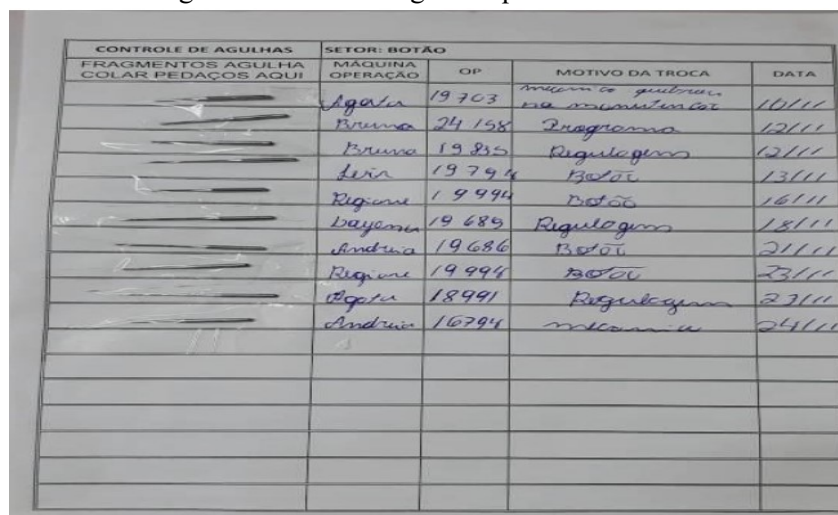 CONTROLE DE AGULHAS SETOR: BOTÃO
FRAGMENTOS AGULHA COLAR PEDAÇOS AQUI MÁQUINA OPERAÇÃO OP MOTIVO DA TROCA DATA
Agata 19703 mecanico quebrou na manutencao 10/11
Bruna 24158 Programa 12/11
Bruna 19835 Regulagem 12/11
19794 Botão 13/11
Regiane 19994 Botão 16/11
19689 Regulagem 18/11
Andreia 19686 Botão 21/11
Regiane 19994 Botão 23/11
Agata 18991 Regulagem 23/11
Andreia 16794 24/11